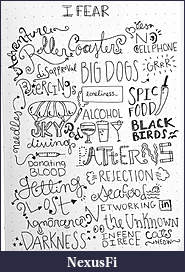 I FEAR
adventure
Roller Coasters
disapproval
BIG DOGS
CELLPHONE
GRRR
PIERCING
needles
loneliness..
SPICY FOOD
SKY diving
ALCOHOL
BLACK BIRDS
Donating BLOOD
PATTERNS
REJECTION
Getting lost
Seafood
NETWORKING
in
ignorance
the Unknown
DARKNESS
Cats
MEOW
NexusFi